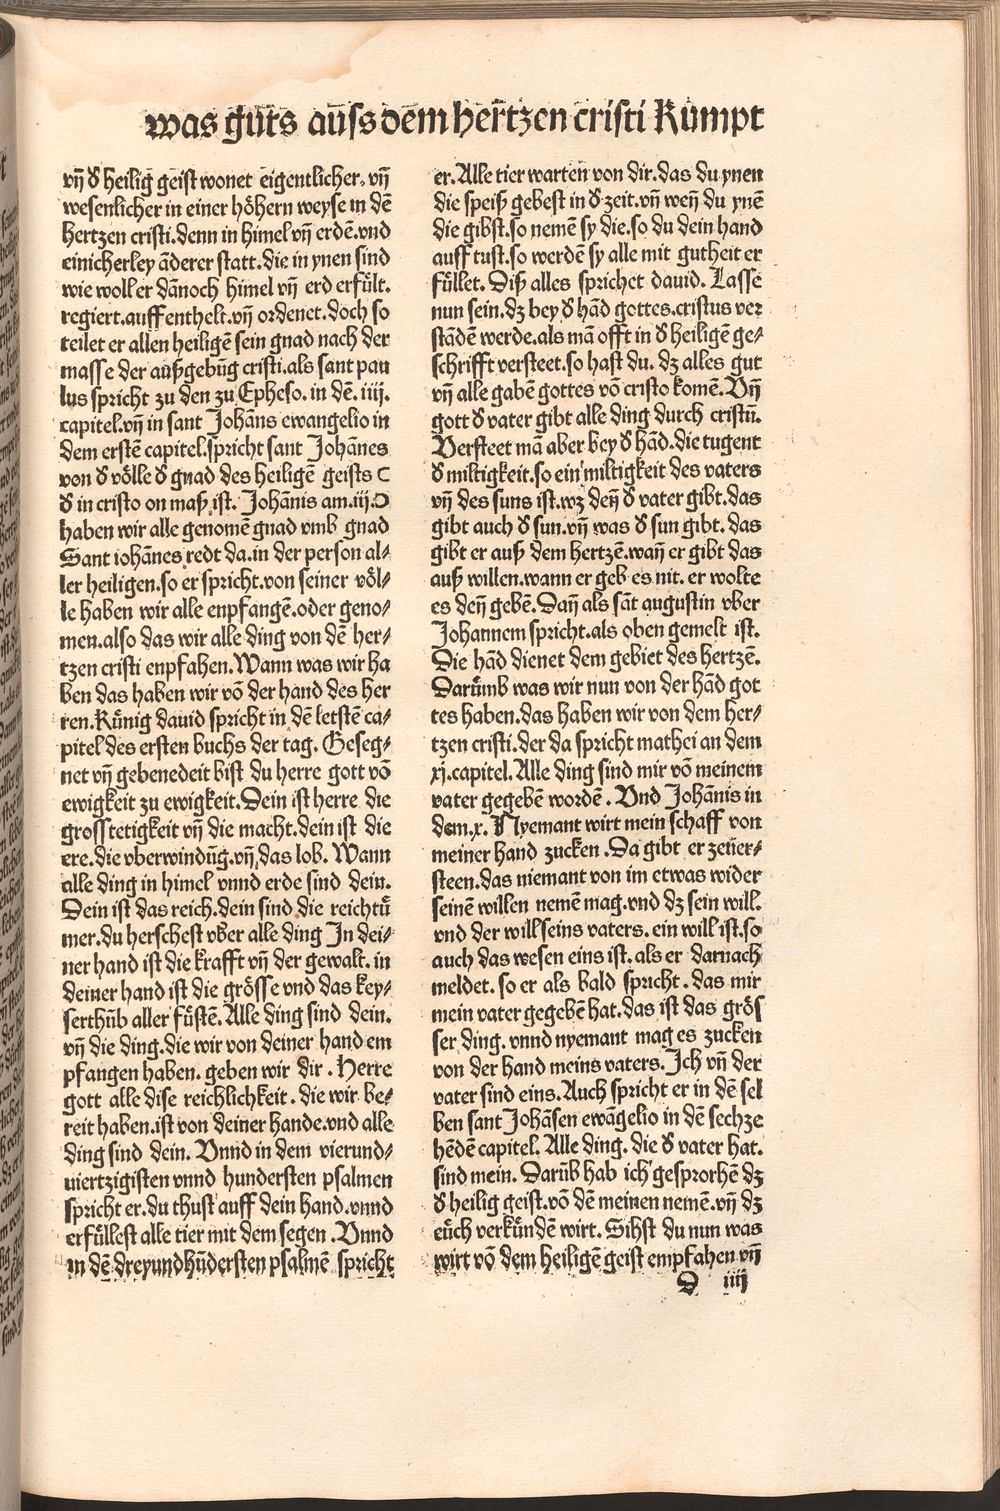 was guts auss dem hertzen cristi kumpt
vñ d̕ heilig geist wonet eigentlicher. vñ
wesenlicher in einer höhern weyse in dē
hertzen cristi. denn in himel vñ erdē. vnd
einicherley āderer statt. die in ynen sind
wie woll er dānoch himel vñ erd erfült.
regiert. auffenthelt. vñ ordenet. doch so
teilet er allen heiligē sein gnad nach der
masse der außgebūg cristi. als sant pau
lus spricht zu den zu Epheso. in dē. iiij.
capitel. vñ in sant Johāns ewangelio in
dem erstē capitel. spricht sant Johānes
von d̕ völle d̕ gnad des heiligē geists ⊂
d̕ in cristo on maß ist. Johānis am. iij. ⊃
haben wir alle genomē gnad vmb gnad
Sant iohānes redt da. in der person al⸗
ler heiligen. so er spricht. von seiner völ⸗
le haben wir alle enpfangē. oder geno⸗
men. also das wir alle ding von dē her⸗
tzen cristi enpfahen. Wann was wir ha
ben das haben wir vō der hand des her
ren. Künig dauid spricht in dē letstē ca⸗
pitel des ersten buchs der tag. Geseg⸗
net vñ gebenedeit bist du herre gott vō
ewigkeit zu ewigkeit. Dein ist herre die
grosstetigkeit vñ die macht. dein ist die
ere. die vberwindūg. vñ das lob. Wann
alle ding in himel vnnd erde sind dein.
Dein ist das reich. dein sind die reichtü
mer. du herschest vber alle ding In dei⸗
ner hand ist die krafft vñ der gewalt. in
deiner hand ist die grösse vnd das key⸗
serthūb aller fürstē. Alle ding sind dein.
vñ die ding. die wir von deiner hand em
pfangen haben. geben wir dir. Herre
gott alle dise reichlichkeit. die wir be⸗
reit haben. ist von deiner hande. vnd alle
ding sind dein. Vnnd in dem vierund⸗
viertzigisten vnnd hundersten psalmen
spricht er. du thust auff dein hand. vnnd
erfüllest alle tier mit dem segen. Vnnd
in dē dreyundhūdersten psalmē spricht
er. Alle tier warten von dir. das du ynen
die speiß gebest in d̕ zeit. vñ weñ du ynē
die gibst. so nemē sy die. so du dein hand
auff tust. so werdē sy alle mit gutheit er
füllet. Diß alles sprichet dauid. Lasse
nun sein. dz bey d̕ hād gottes. cristus ver
stādē werde. als mā offt in d̕ heiligē ge⸗
schrifft versteet. so hast du. dz alles gut
vñ alle gabē gottes vō cristo komē. Vñ
gott d̕ vater gibt alle ding durch cristū.
Versteet mā aber bey d̕ hād. die tugent
d̕ miltigkeit. so ein miltigkeit des vaters
vñ des suns ist. wz deñ d̕ vater gibt. das
gibt auch d̕ sun. vñ was d̕ sun gibt. das
gibt er auß dem hertzē. wañ er gibt das
auß willen. wann er geb es nit. er wolte
es deñ gebē. Dañ als sāt augustin vber
Johannem spricht. als oben gemelt ist.
Die hād dienet dem gebiet des hertzē.
Darümb was wir nun von der hād got
tes haben. das haben wir von dem her⸗
tzen cristi. der da spricht mathei an dem
xj. capitel. Alle ding sind mir vō meinem
vater gegebē wordē. Vnd Johānis in
dem. x. Nyemant wirt mein schaff von
meiner hand zucken. Da gibt er zeüer⸗
steen. das niemant von im etwas wider
seinē willen nemē mag. vnd dz sein will.
vnd der will seins vaters. ein will ist. so
auch das wesen eins ist. als er darnach
meldet. so er als bald spricht. das mir
mein vater gegebē hat. das ist das grös
ser ding. vnnd nyemant mag es zucken
von der hand meins vaters. Ich vñ der
vater sind eins. Auch spricht er in dē sel
ben sant Johāsen ewāgelio in dē sechze
hēdē capitel. Alle ding. die d̕ vater hat.
sind mein. Darüb hab ich gesprorhē dz
d̕ heilig geist. vō dē meinen nemē. vñ dz
eüch verkündē wirt. Sihst du nun was
wirt vō dem heiligē geist empfahen vñ
D iiij